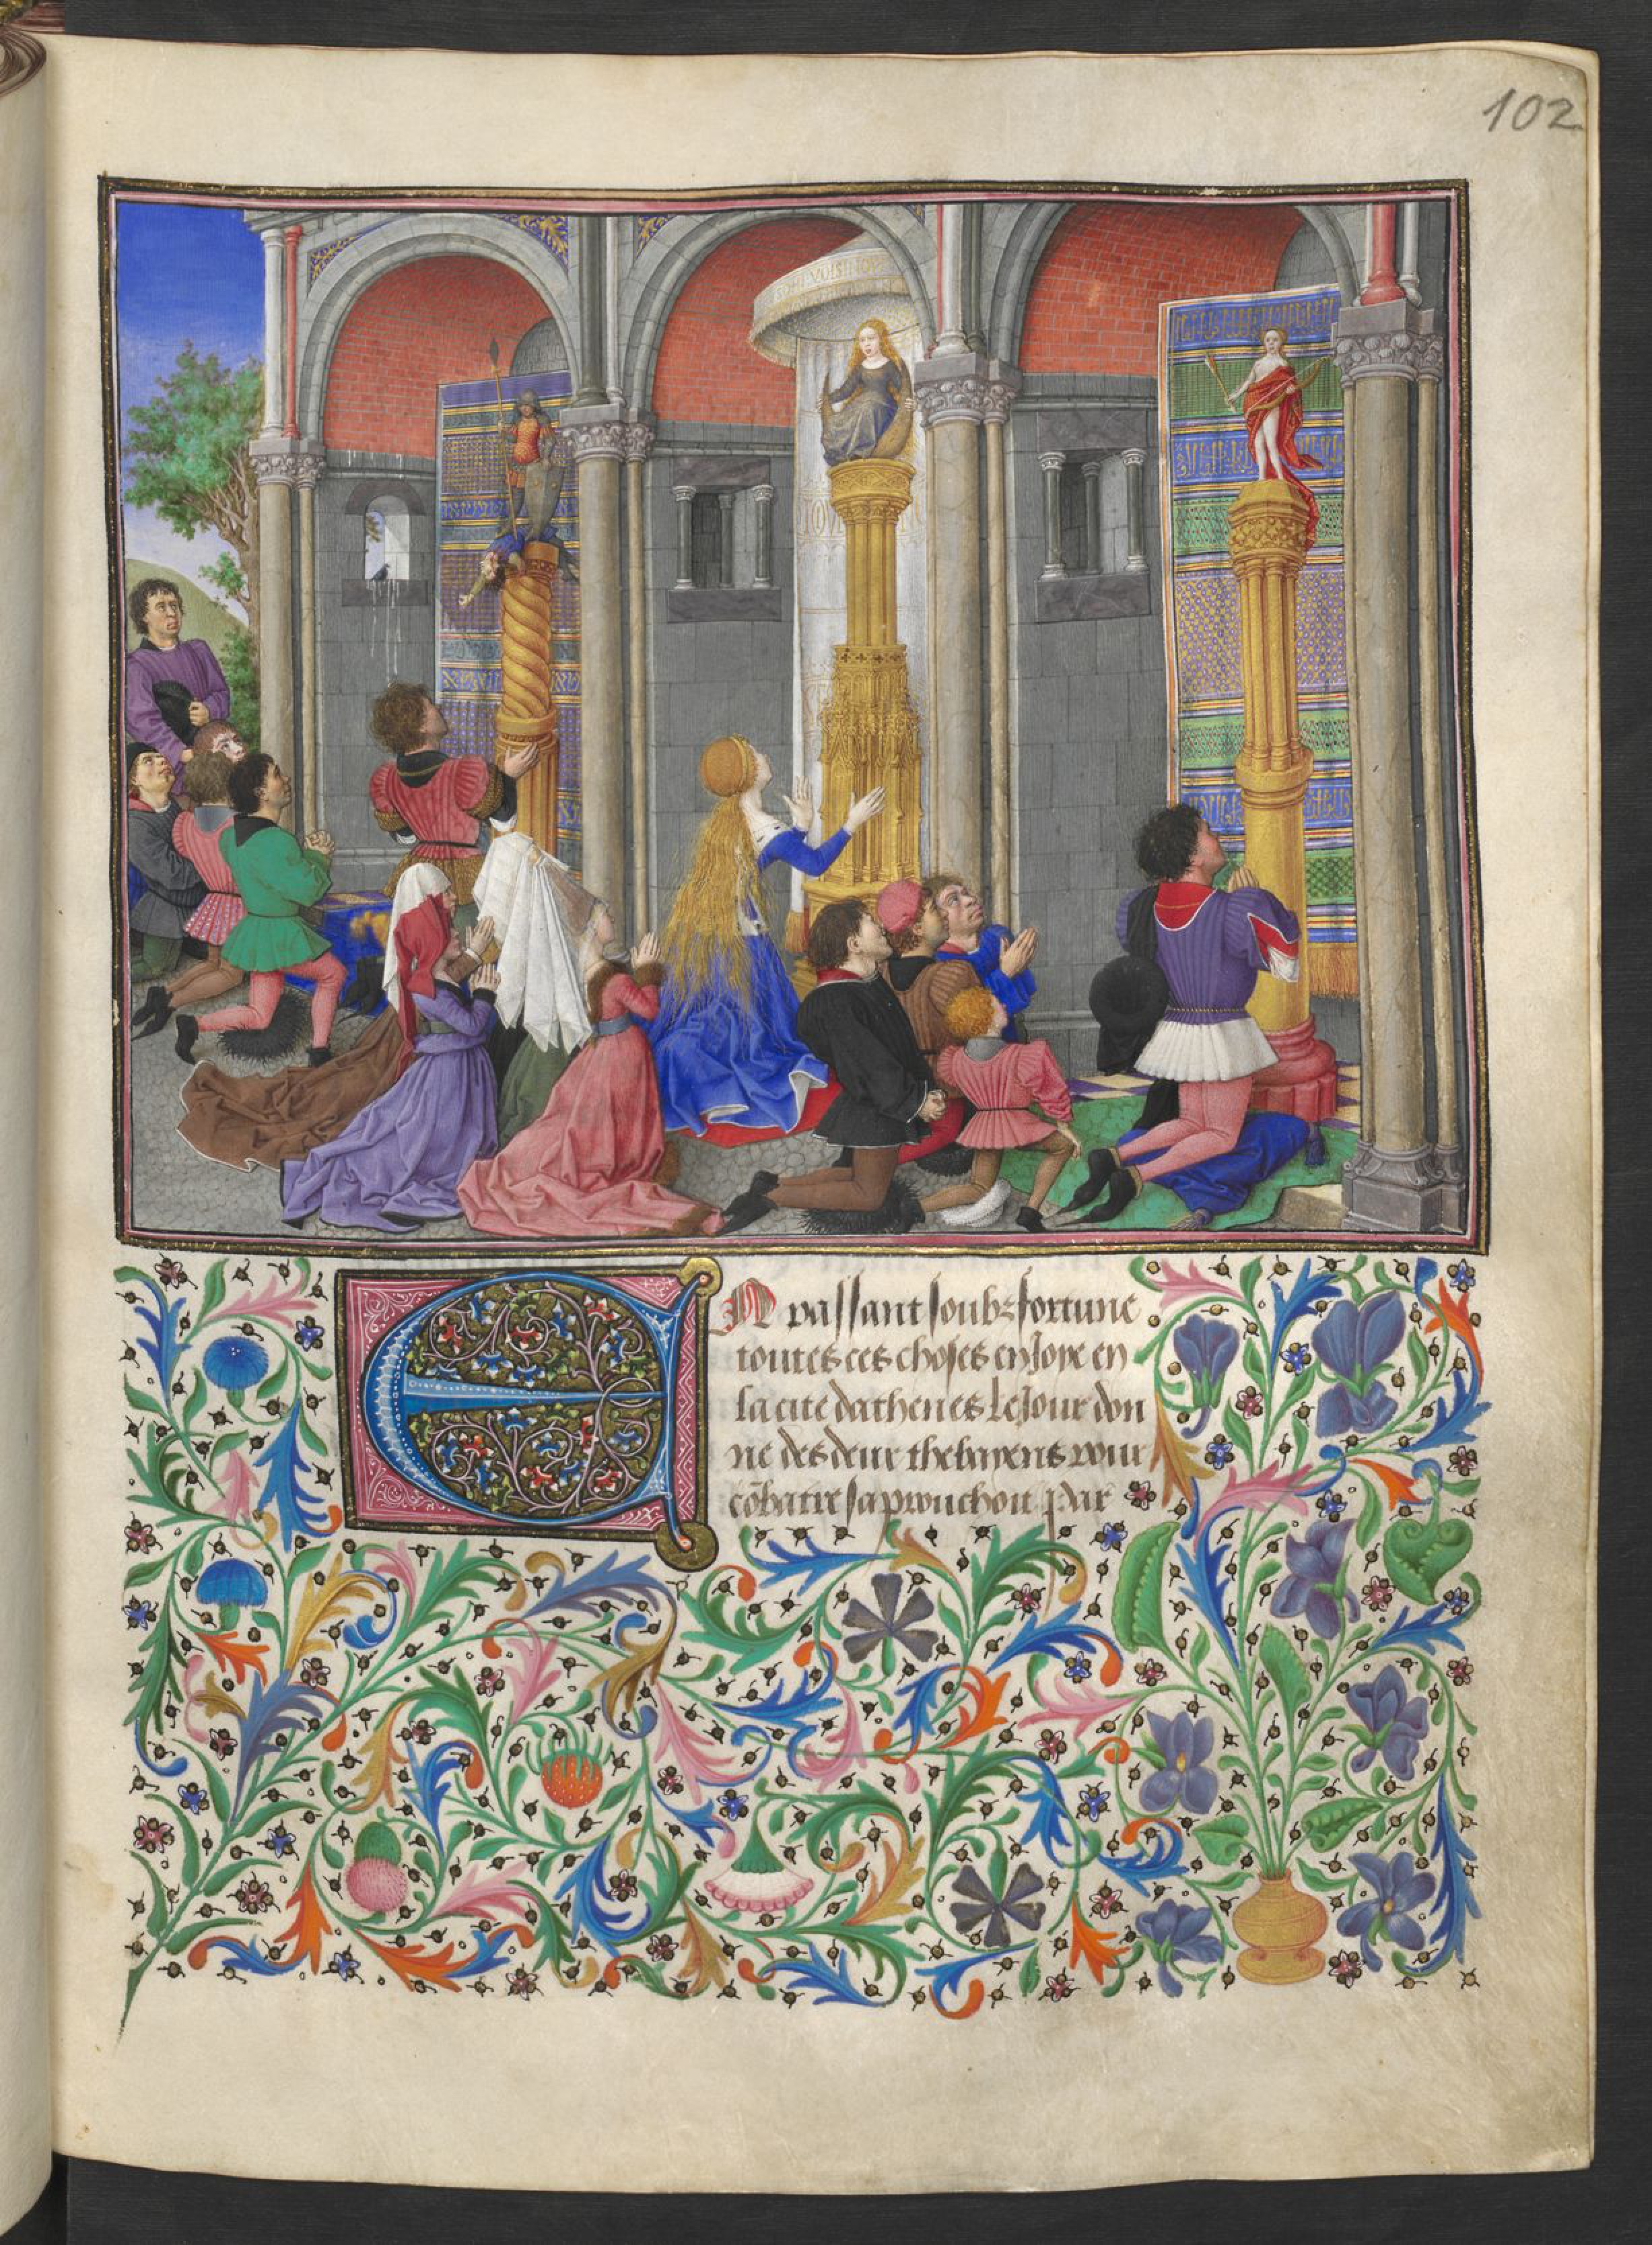 102
EN passant soubz fortune
toutes ces choses en joye en
la cite dathenes Le jour don
ne des deux thebayens pour
cōbatre saprouchoit Par